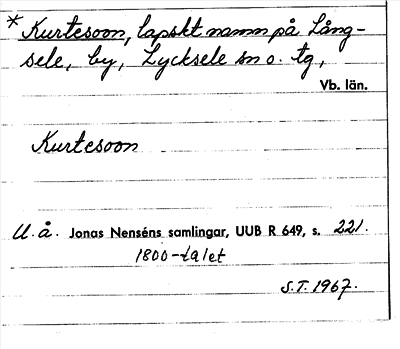 * Kurtesoon, lapskt namn på Lång-
sele, by, Lycksele sn o. tg,
Vb. län.
Kurtesoon
U.å. Jonas Nenséns samlingar, UUB R 649, s. 221.
1800-talet
S.T. 1967.